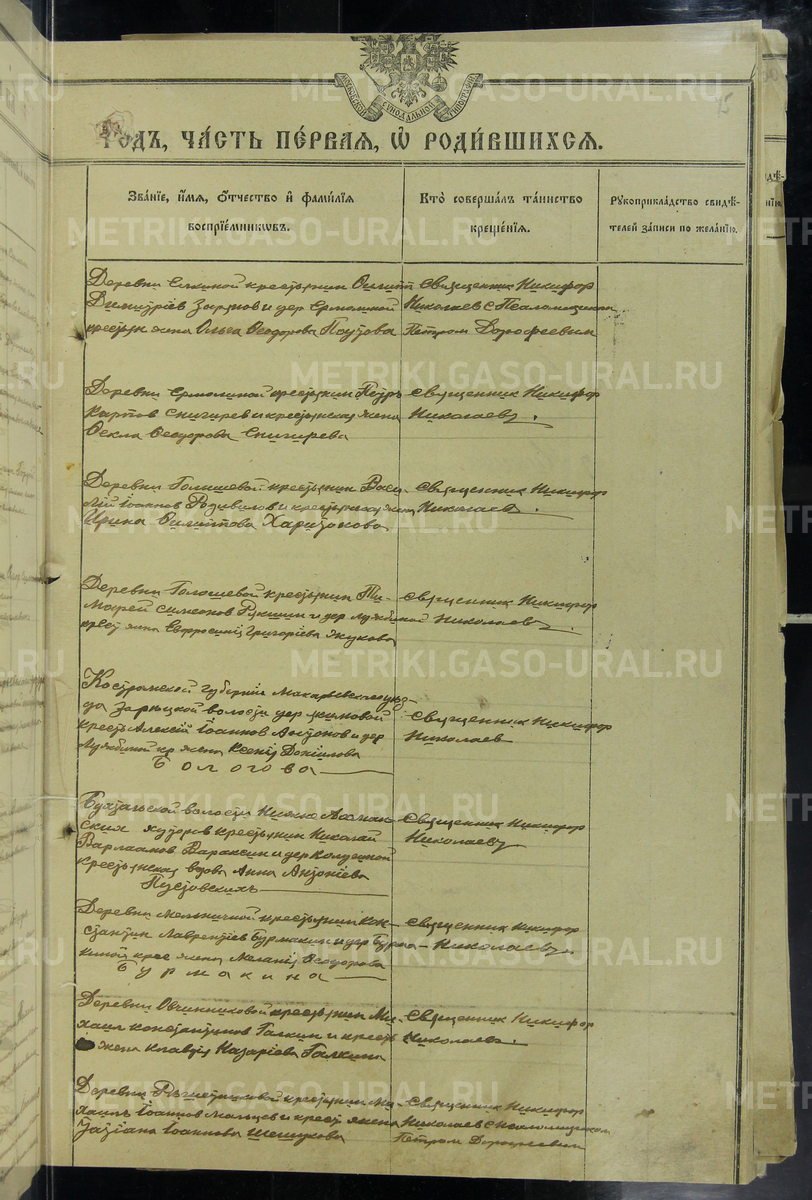 МОСКОВСКОЙ СУНОДАЛЬНОЙ ТИПОГРАФІИ
METRIKI.GASO-URAL.RU
Годъ, часть первая, ѡ родившихся.
Званіе, имя, отчество и фамилія воспріемникѡвъ.
Кто совершалъ таинство крещенія.
Рукоприкладство свидѣтелей записи по желанію.
крестьянин Филипп
Димитріев и дер Ермолиной
крестьян жена Ольга Ѳеодорова Паутова
Священник Никифор
Николаев с Псаломщиком
Петром Дорофеевим
Деревни Ермолиной крестьянин Петр
Карпов Снигирев и крестьянская жена
Ѳекла Ѳеодорова Снигирева
Священник Никифор
Николаев
Деревни крестьянин Васи-
лий Іоаннов Родивилов и крестьянская жена
Ирина Филиппова Харитонова
Священник Никифор
Николаев
Деревни крестьянин Ти-
мофей Симеонов и дер
крест жена Евфросинія Григоріева Жукова
Священник Никифор
Николаев
Костромской губерніи Макарьевского уез-
да волости дер
кресть Алексій Іоаннов Антонов и дер
кр жена Ксенія Даніилова
Бологова
Священник Никифор
Николаев
волости Нижне
ских хуторов крестьянин Николай
Варлаамов Вараксин и дер
крестьянская вдова Анна Антоніева
Пустовских
Священник Никифор
Николаев
Деревни Мельничной крестьянин Кон-
стантин Лаврентіев Бурмакин и дер Бурма-
киной крес жена Меланія Ѳеодорова
Бурмакина
Священник Никифор
Николаев
Деревни Овчинниковой крестьянин Ми-
хаил Константинов Галкин и кресть
жена Клавдія Назаріева Галкина
Священник Никифор
Николаев
Деревни крестьянин Ми-
хаил Іоаннов Мальцев и крест жена
Татіана Іоаннова Шешукова
Священник Никифор
Николаев с Псаломщиком
Петром Дорофеевим